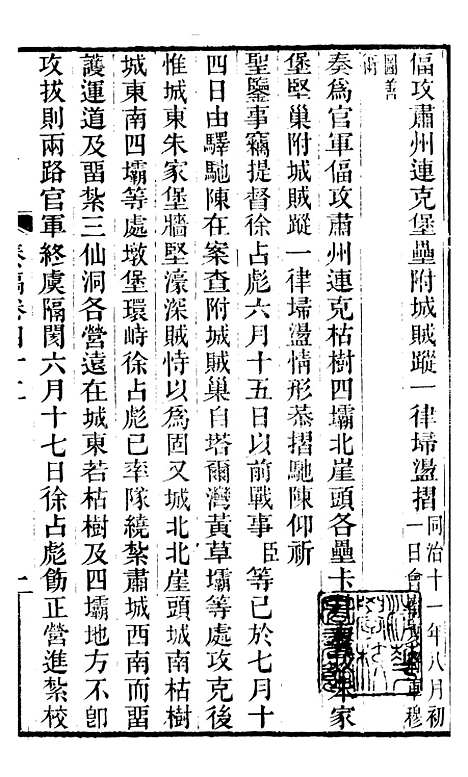 偪攻肅州連克堡壘附城賊蹤一律埽盪摺同治十一年八月初一日會穆
圖善
銜
奏爲官軍偪攻肅州連克枯樹四壩北崖頭各壘卡朱家
堡堅巢附城賊蹤一律埽盪情形恭摺馳陳仰祈
聖鑒事竊提督徐占彪六月十五日以前戰事臣等已於七月十
四日由驛馳陳在案查附城賊巢自塔爾灣黃草壩等處攻克後
惟城東朱家堡牆堅濠深賊恃以爲固又城北北崖頭城南枯樹
城東南四壩等處墩堡環峙徐占彪已率隊繞紮肅城西南而畱
護運道及畱紮三仙洞各營遠在城東若枯樹及四壩地方不卽
攻拔則兩路官軍終虞隔閡六月十七日徐占彪飭正營進紮校
奏稿卷四十二